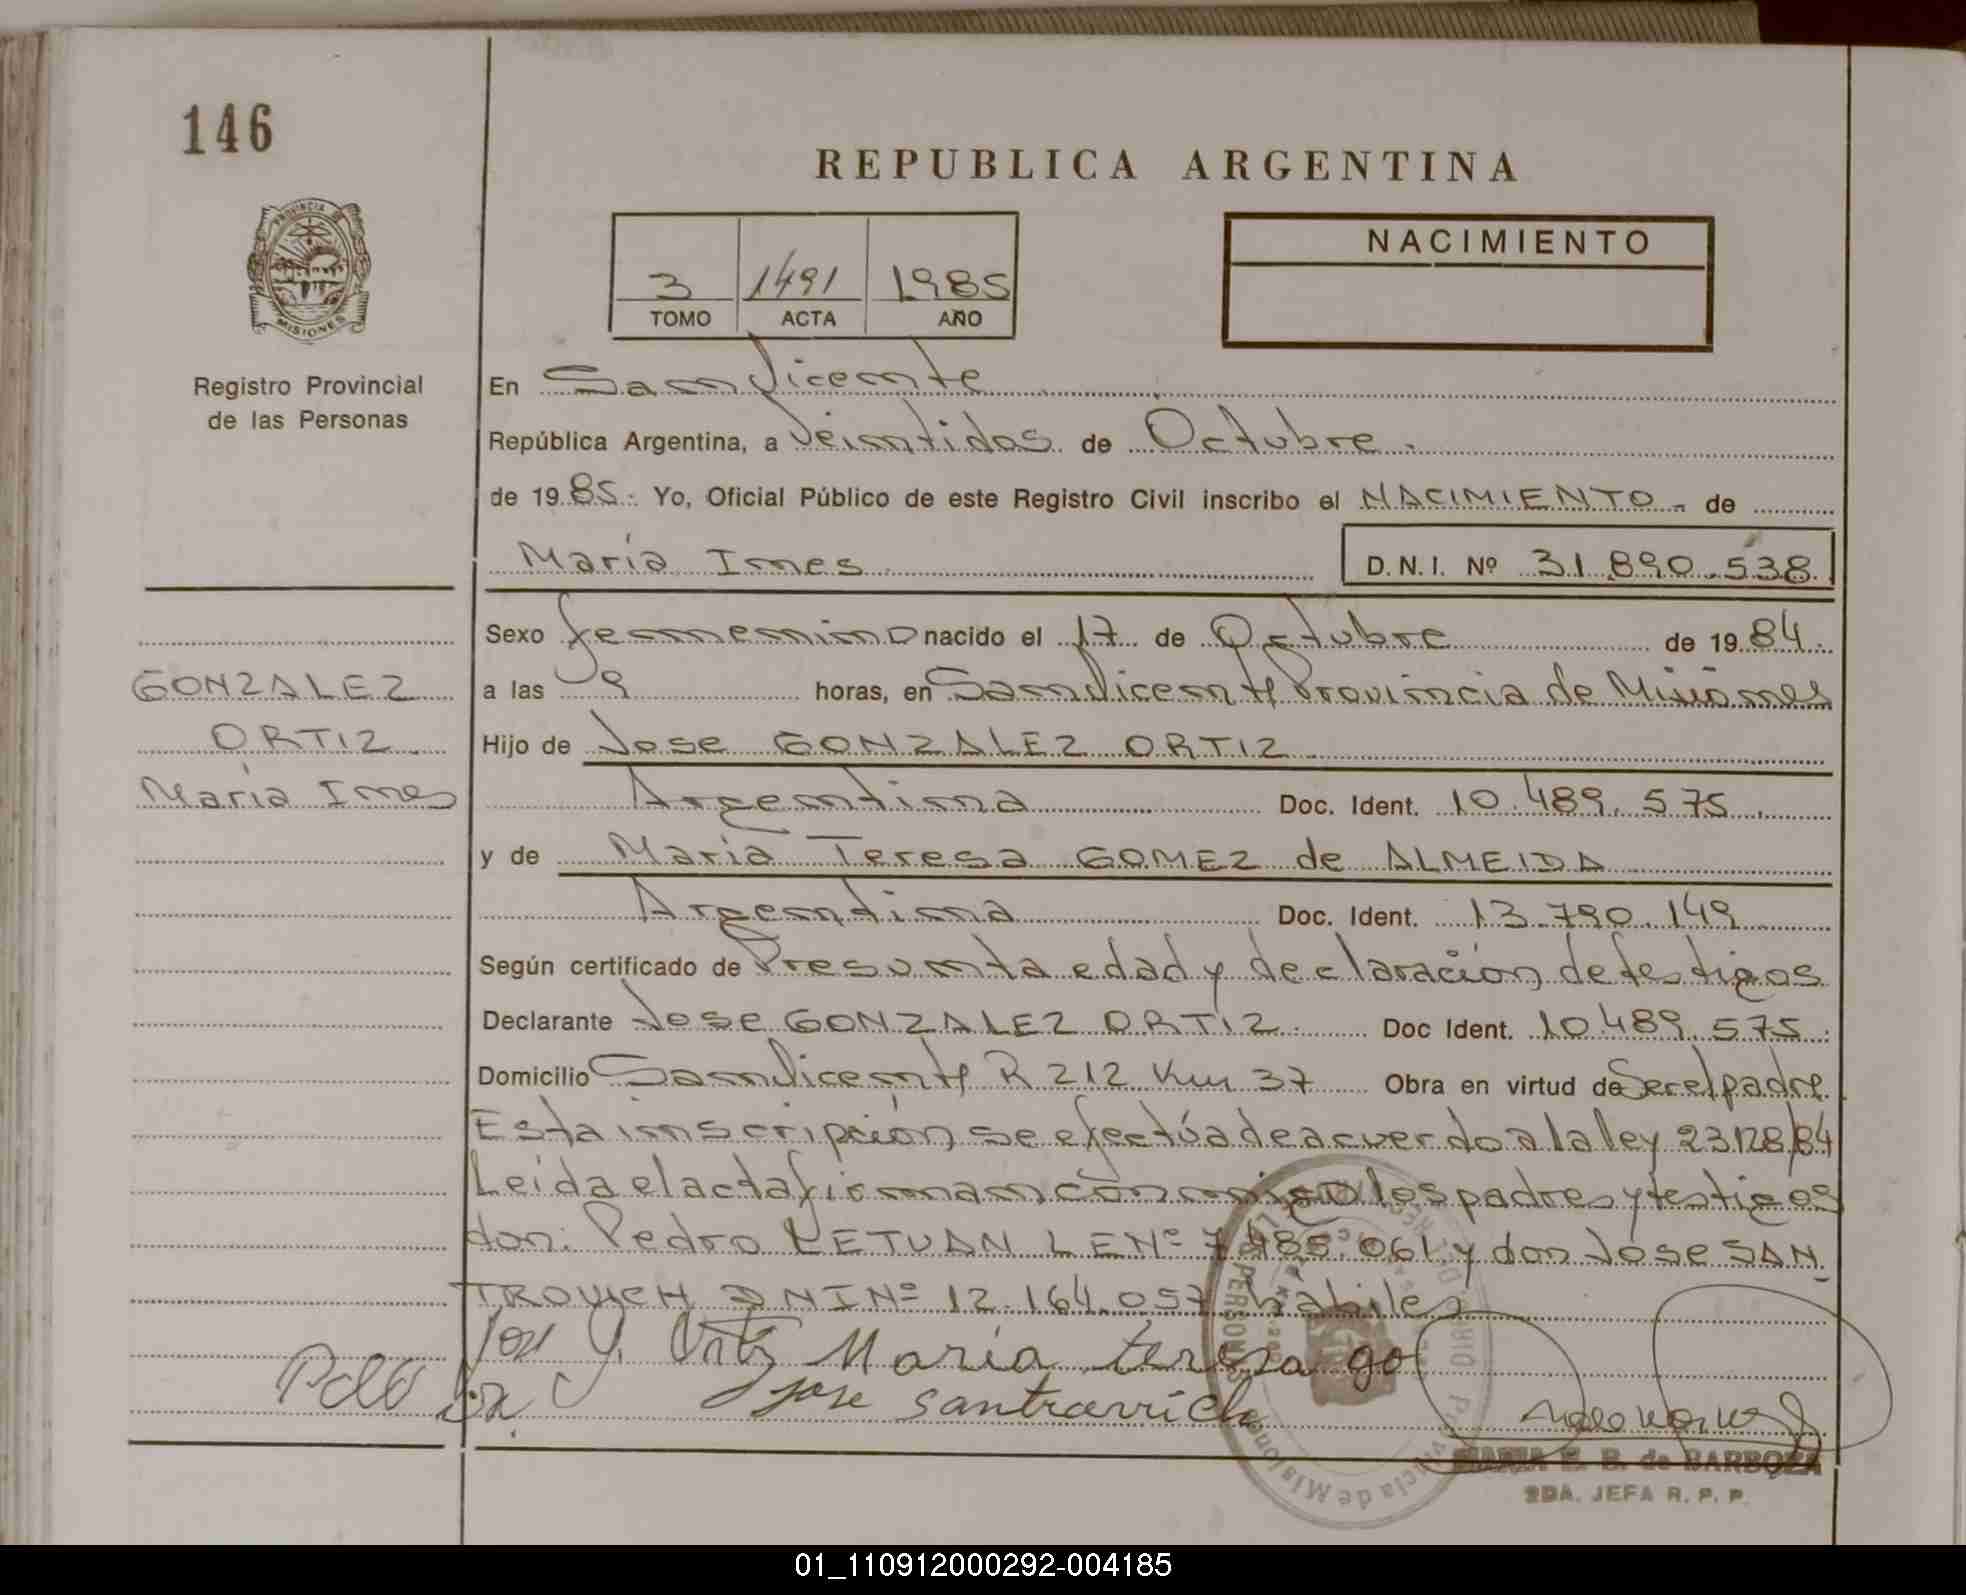 146
REPUBLICA ARGENTINA
PROVINCIA DE
MISIONES
Registro Provincial
de las Personas
3 1491 1985
TOMO ACTA AÑO
NACIMIENTO
En San Vicente
República Argentina, a Veintidos de Octubre.
de 1985.- Yo, Oficial Público de este Registro Civil inscribo el NACIMIENTO.- de
María Ines D.N.I. Nº 31.890.538
Sexo femenino nacido el 17 de Octubre de 1984.
GONZALEZ
ORTIZ
María Ines
a las 9 horas, en San Vicente Provincia de Misiones
Hijo de Jose GONZALEZ ORTIZ
Argentina Doc. Ident. 10.489.575
y de María Teresa GOMEZ de ALMEIDA
Argentina Doc. Ident. 13.790.149
Según certificado de Presunta edad y declaración de testigos
Declarante Jose GONZALEZ ORTIZ. Doc Ident. 10.489.575.
Domicilio San Vicente R 212 Km 37 Obra en virtud de Ser el padre.
Esta inscripción se efectúa de acuerdo a la ley 23128/84
Leída el acta firman conmigo los padres y testigos
don: Pedro KETUAN L E Nº 7.485.061 y don Jose SAN
TROVICH DNI Nº 12.164.057 habiles
Jose G. Ortiz María teresa go
jose santrovich
MARIA E. B. de BARBOZA
2DA. JEFA R. P. P.
Provincia de Misiones
01_110912000292-004185